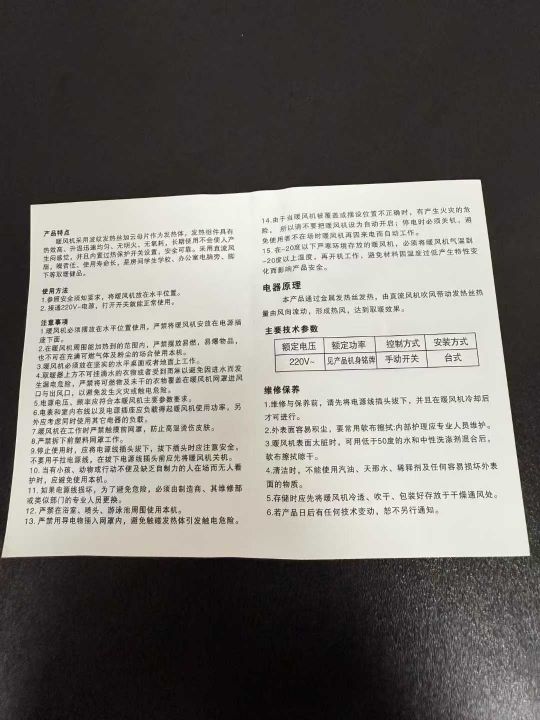 产品特点
暖风机采用波纹发热丝加云母片作为发热体，发热组件具有
热效高、升温迅速均匀、无明火、无氧耗，长期使用不会使人产
生闷感觉，并且内置过热保护开关设置，安全可靠。采用直流风
扇，噪音低、使用寿命长，是房间学生学校、办公室电脑旁、脚
下等取暖健品。
使用方法
1.参照安全须知要求，将暖风机放在水平位置。
2.接通220V~电源，打开开关就能正常使用。
注意事项
1.暖风机必须摆放在水平位置使用，严禁将暖风机安放在电源插
座下面。
2.在暖风机周围能加热到的范围内，严禁摆放易燃，易爆物品，
也不可在充满可燃气体及粉尘的场合使用本机。
3.暖风机必须放在坚实的水平桌面或者地面上工作。
4.取暖器上方不可挂滴水的衣物或者受到雨淋以避免因进水而发
生漏电危险，严禁将可燃物及未干的衣物覆盖在暖风机网罩进风
口与出风口，以避免发生火灾或触电危险。
5.电源电压，频率应符合本暖风机主要参数要求。
6.电表和室内布线以及电源插座应负载得起暖风机使用功率，另
外应考虑同时使用其它电器的负载。
7.暖风机在工作时严禁触摸前网罩，防止高温烫伤皮肤。
8.严禁拆下前塑料网罩工作。
9.停止使用时，应将电源线插头拔下，拔下插头时应注意安全，
不要用手拉电源线，在拔下电源线插头前应先将暖风机关机。
10.当有小孩、动物或行动不便及缺乏自制力的人在场而无人看
护时，应避免使用本机。
11.如果电源线损坏，为了避免危险，必须由制造商、其维修部
或类似部门的专业人员更换。
12.严禁在浴室、喷头、游泳池周围使用本机。
13.严禁用导电物插入网罩内，避免触碰发热体引发触电危险。
14.由于当暖风机被覆盖或摆设位置不正确时，有产生火灾的危
险，所以请不要把暖风机设为自动开启；停电时必须关机，避
免使用者不在场时暖风机再因来电而自动工作。
15.在-20度以下严寒环境存放的暖风机，必须将暖风机气温到
-20度以上温度，再开机工作，避免材料因温度过低产生特性变
化而影响产品安全。
电器原理
本产品通过金属发热丝发热，由直流风机吹风带动发热丝热
量由风向流动，形成热风，达到取暖效果。
主要技术参数
额定电压 额定功率 控制方式 安装方式
220V~ 见产品机身铭牌 手动开关 台式
维修保养
1.维修与保养前，请先将电源线插头拔下，并且在暖风机冷却后
才可进行。
2.外表面容易积尘，要常用软布擦拭;内部护理应专业人员维护。
3.暖风机表面太脏时，可用低于50度的水和中性洗涤剂混合后，
软布擦拭晾干。
4.清洁时，不能使用汽油、天那水、稀释剂及任何容易损坏外表
面的物质。
5.存储时应先将暖风机冷透、吹干、包装好存放于干燥通风处。
6.若产品日后有任何技术变动，恕不另行通知。